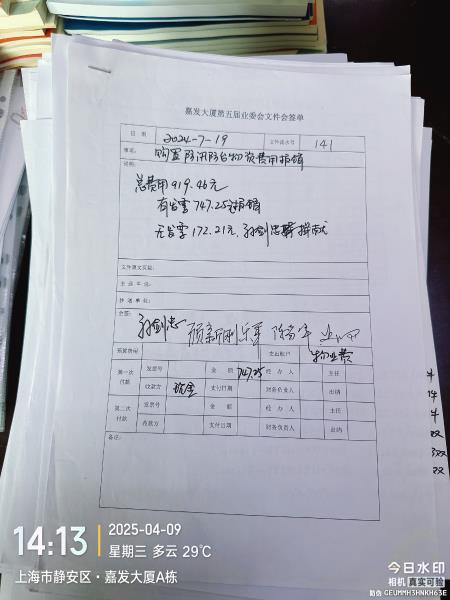 嘉发大厦第五届业委会文件会签单
日期 2024-7-19 文件流水号 141
事项: 购置防汛防台物资费用报销
说明:
总费用919.46元
有发票747.25元报销
无发票172.21元.孙剑忠 捐献
文件原文页数:
主送单位:
抄送单位:
会签: 孙剑忠 顾新刚
预算费用 支出账户 物业费
第一次付款 发票号 金额 747.25 经办人 主任
收款方 现金 支付日期 财务负责人 出纳
第二次付款 发票号 金额 经办人 主任
收款方 支付日期 财务负责人 出纳
备注:
14:13
2025-04-09
星期三 多云 29℃
上海市静安区·嘉发大厦A栋
今日水印
相机 真实可验
防伪 CEUMMH3HNKH63E